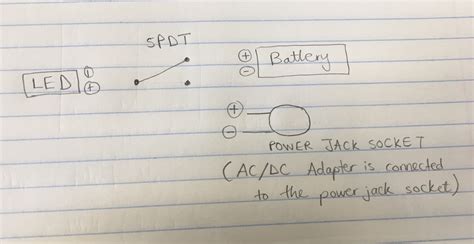 SPDT
LED
⊖
⊕
⊕
⊖
Battery
⊕
⊖
POWER JACK SOCKET
(AC/DC Adapter is connected
to the power jack socket)